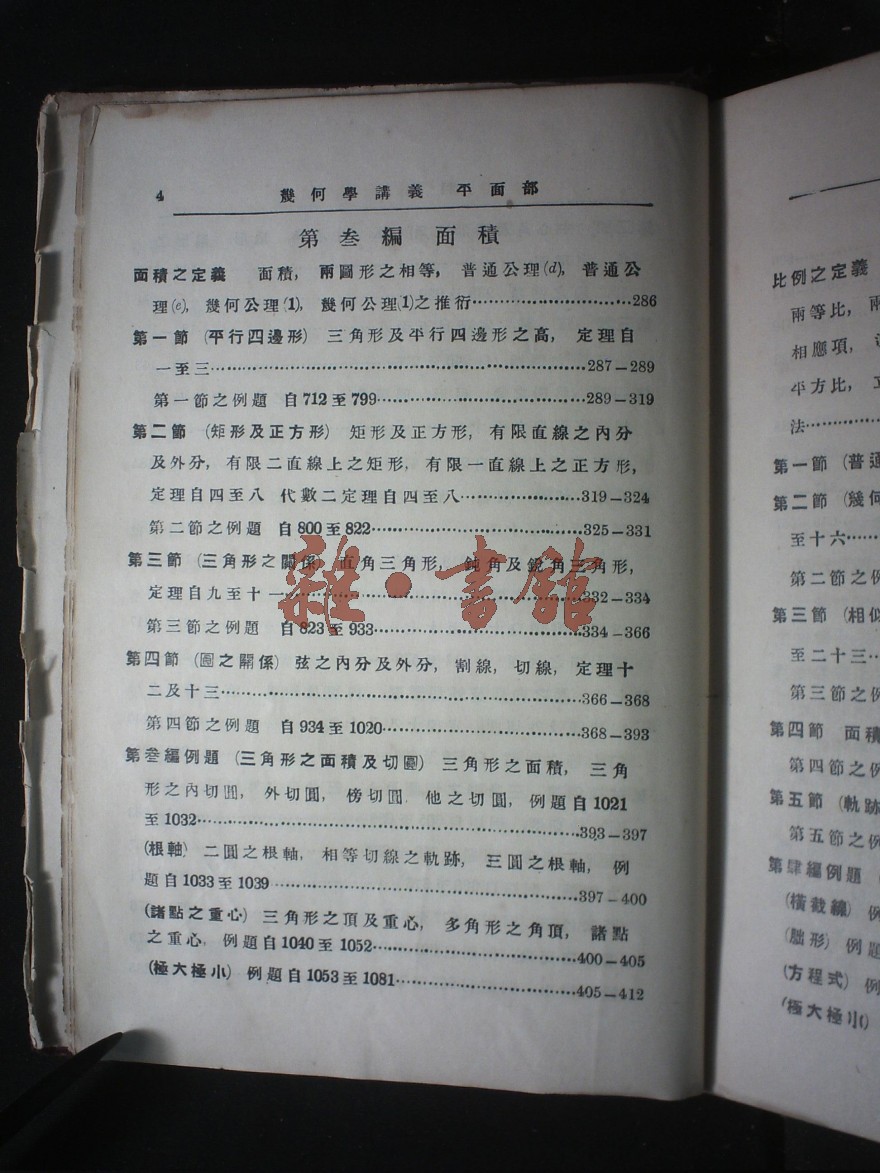 4 幾何學講義 平面部
第叁編面積
面積之定義 面積, 兩圖形之相等, 普通公理(d), 普通公
理(e), 幾何公理(1), 幾何公理(1)之推衍……286
第一節 (平行四邊形) 三角形及平行四邊形之高, 定理自
一至三……287—289
第一節之例題 自712至799……289—319
第二節 (矩形及正方形) 矩形及正方形, 有限直線之內分
及外分, 有限二直線上之矩形, 有限一直線上之正方形,
定理自四至八 代數二定理自四至八……319—324
第二節之例題 自800至822……325—331
第三節 (三角形之關係) 直角三角形, 鈍角及銳角三角形,
定理自九至十一……332—334
第三節之例題 自823至933……334—366
第四節 (圓之關係) 弦之內分及外分, 割線, 切線, 定理十
二及十三……366—368
第四節之例題 自934至1020……368—393
第叁編例題 (三角形之面積及切圓) 三角形之面積, 三角
形之內切圓, 外切圓, 傍切圓, 他之切圓, 例題自1021
至1032……393—397
(根軸) 二圓之根軸, 相等切線之軌跡, 三圓之根軸, 例
題自1033至1039……397—400
(諸點之重心) 三角形之頂及重心, 多角形之角頂, 諸點
之重心, 例題自1040至1052……400—405
(極大極小) 例題自1053至1081……405—412
雜·書館
比例之定義
兩等比, 兩
相應項,
平方比,
法……
第一節 (普通
第二節 (幾何
至十六……
第二節之例
第三節 (相似
至二十三……
第三節之例
第四節 面積
第四節之例
第五節 (軌跡
第五節之例
第肆編例題
(橫截線) 例
(朏形) 例題
(方程式) 例
(極大極小)